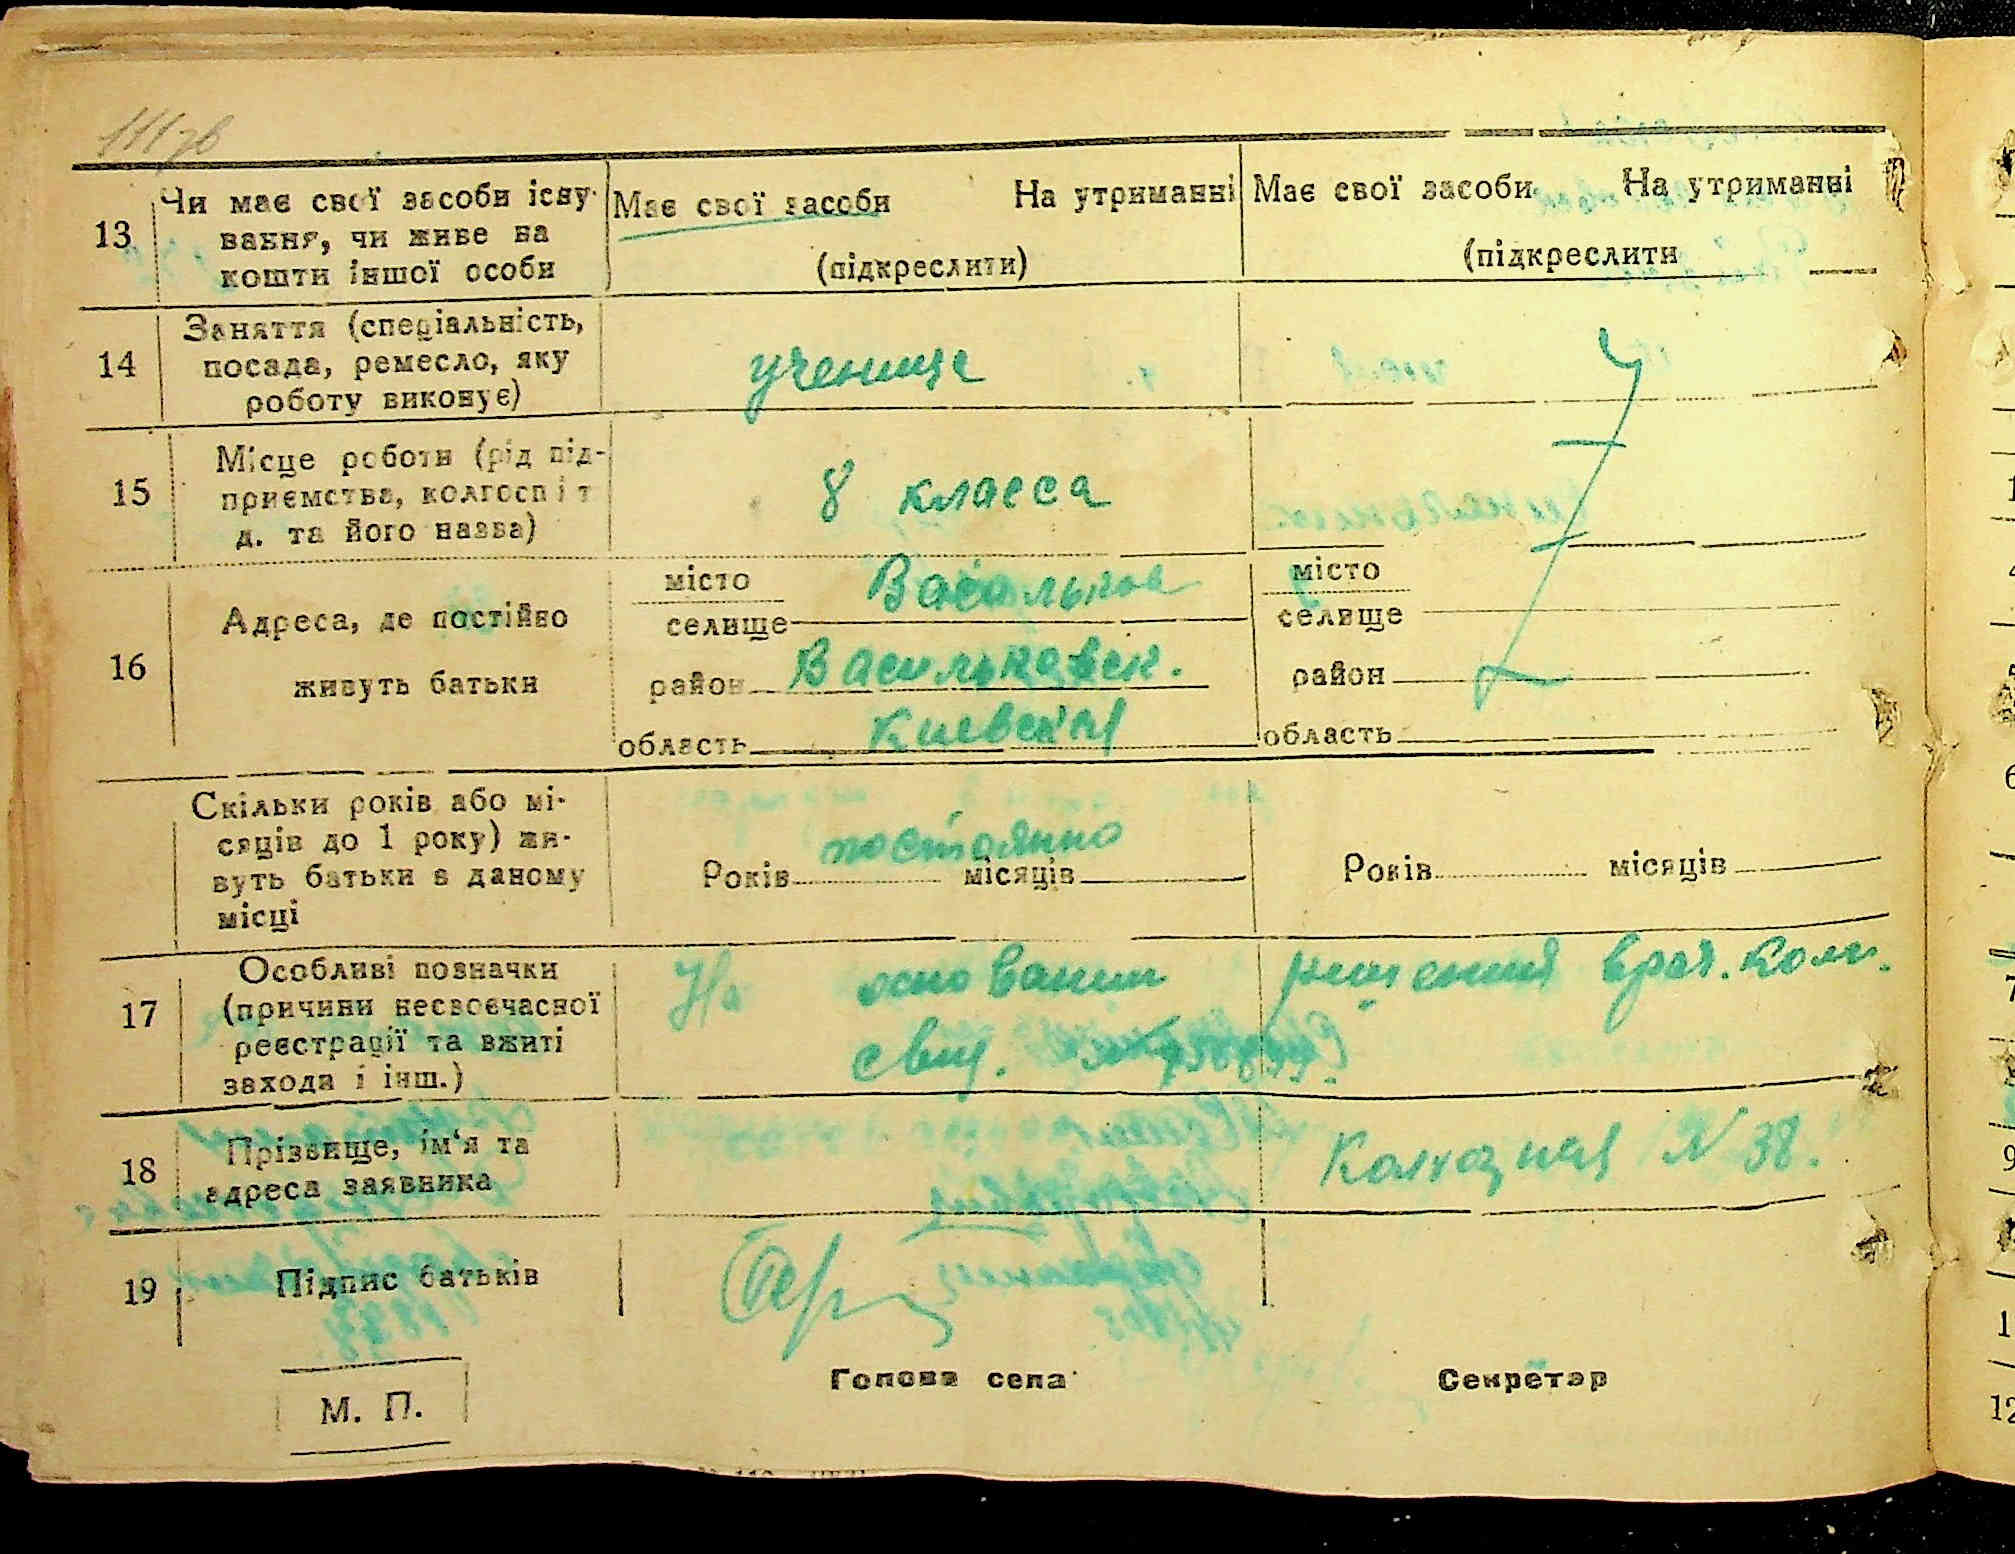 111зв
13 Чи має свої засоби існу- Має свої засоби На утриманні Має свої засоби На утриманні
вання, чи живе на
кошти іншої особи (підкреслити) (підкреслити
14 Заняття (спеціальність,
посада, ремесло, яку ученице
роботу виконує)
15 Місце роботи (рід під-
приємства, колгосп і т 8 класса
д. та його назва)
16 Адреса, де постійно
живуть батьки
місто Васильков місто
селище селище
район Васильковск. район
область Киевская область
Скільки років або мі-
сяців до 1 року) жи- постоянно
вуть батьки в даному Років місяців Років місяців
місці
17 Особливі позначки На основании решения врач. Ком.
(причини несвоєчасної
реєстрації та вжиті свид.
заходи і інш.)
18 Прізвище, ім'я та
адреса заявника N 38.
19 Підпис батьків
Голова села Секретар
М. П.